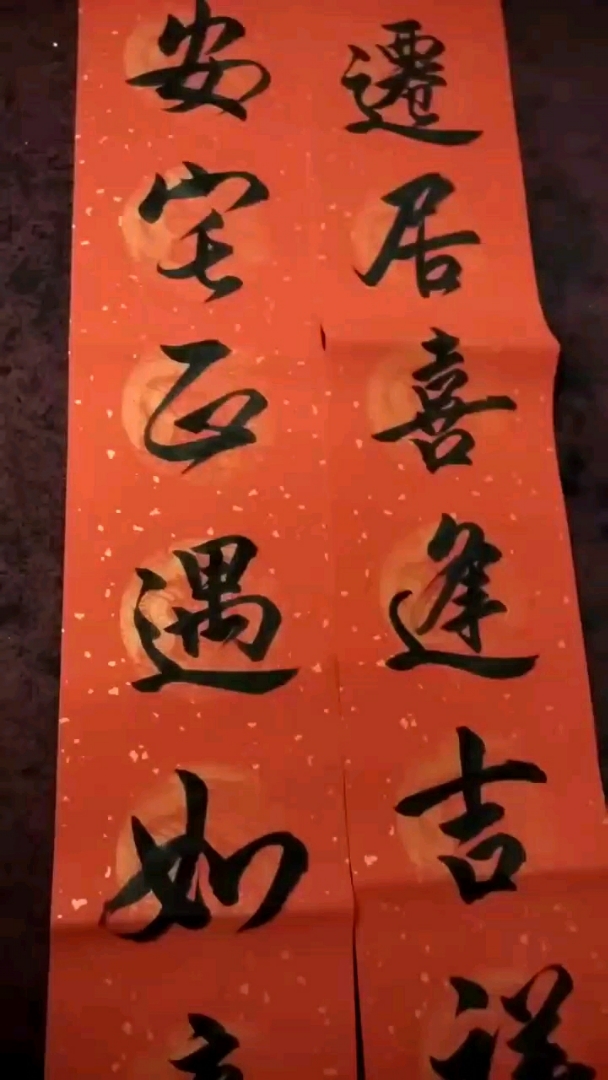 遷居喜逢吉祥
安宅正遇如